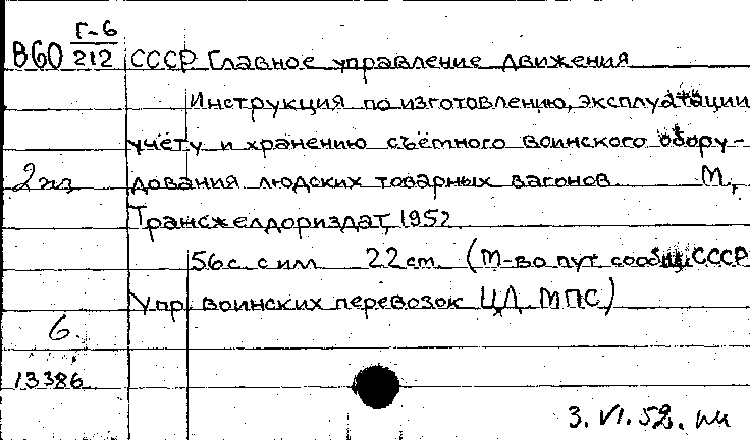 Г-6
В60 212 СССР Главное управление движения
Инструкция по изготовлению, эксплуатации
учёту и хранению съёмного воинского обору-
2 экз дования людских товарных вагонов. М,
Трансжелдориздат, 1952
56 с. с илл 22 см. (М-во пут сообщ. СССР
Упр. воинских перевозок ЦД МПС)
6.
13386
3. VI. 52.